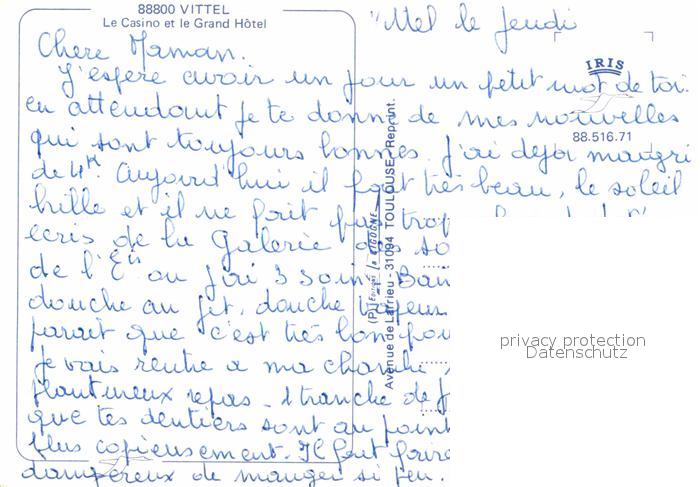 88800 VITTEL
Le Casino et le Grand Hôtel
Mel le Jeudi
Chere Maman.
J'espère avoir un jour un petit mot de toi.
en attendant je te donne de mes nouvelles
qui sont toujours bonnes. J'ai deja maigri
de 4K. Aujourd'hui il fait très beau, le soleil
brille et il ne fait pas trop
ecris de la Galerie des so
de l'Ets ou j'ai 3 soins Bain
douche au jet, douche
parait que c'est très bon pou
Je vais rentre a ma chambre,
plantureux repas - 1 tranche de j
que tes dentiers sont au point
plus copieusement. Il faut faire
dangereux de manger si peu.
IRIS
88.516.71
Avenue de Larrieu - 31094 TOULOUSE - Reprint.
privacy protection
Datenschutz